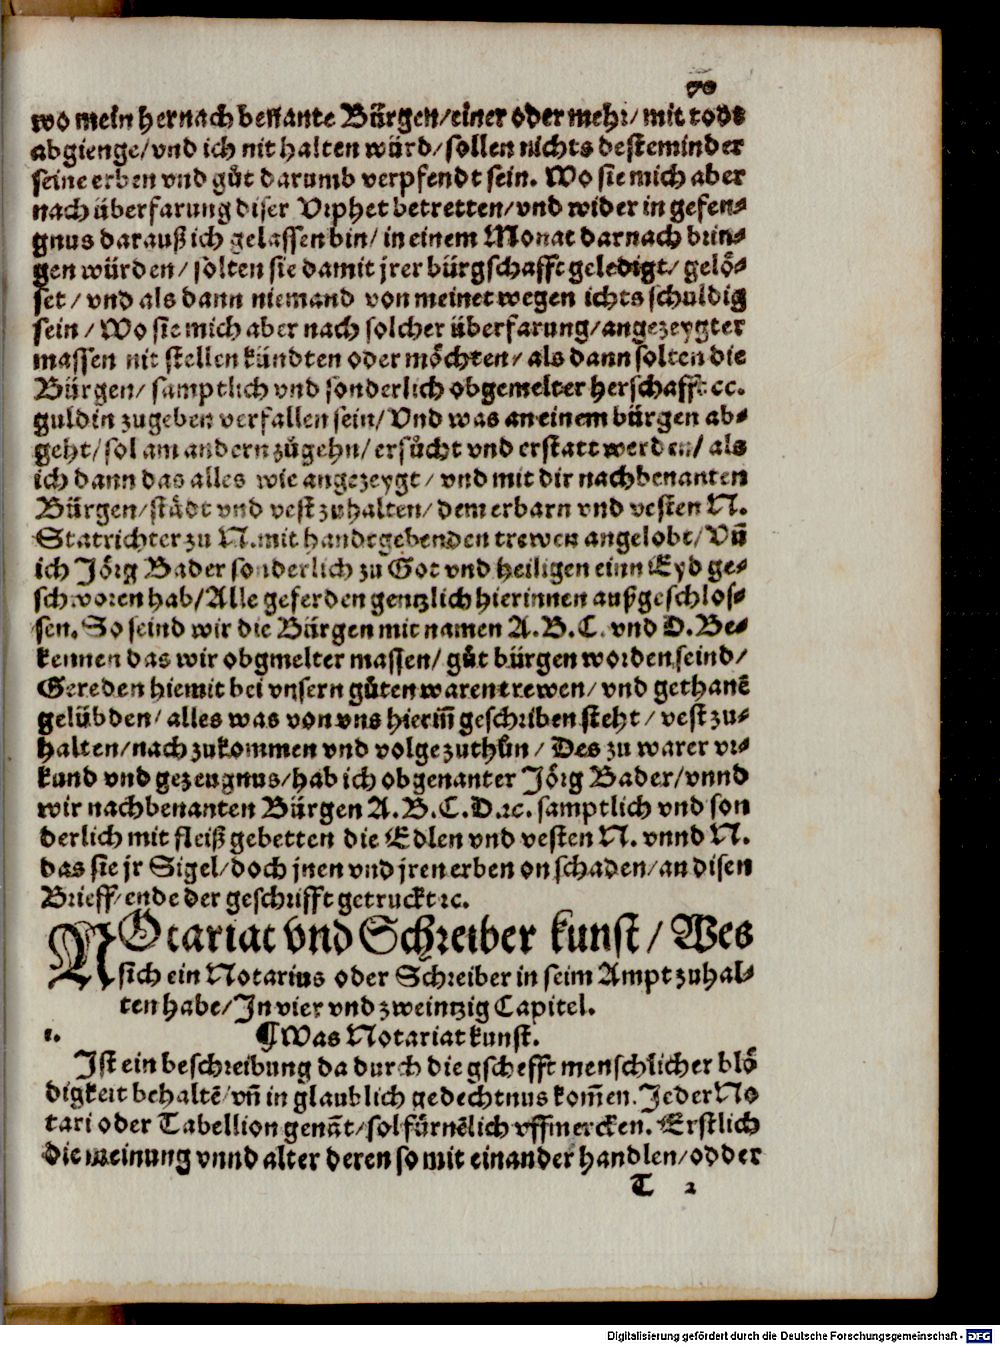 70
wo mein hernach benante Bürgen/einer oder mehr/mit todt
abgienge/vnd ich nit halten würd/sollen nichts desteminder
seine erben vnd gůt darumb verpfendt sein. Wo sie mich aber
nach überfarung diser Vrphet betretten/vnd wider in gefen-
gnus darauß ich gelassen bin/in einem Monat darnach brin-
gen würden/solten sie damit jrer bürgschafft geledigt/gelö-
set/vnd als dann niemand von meinet wegen ichts schuldig
sein/Wo sie mich aber nach solcher überfarung/angezeygter
massen nit stellen kündten oder möchten/als dann solten die
Bürgen/samptlich vnd sonderlich obgemelter herschafft cc.
guldin zugeben verfallen sein/Vnd was an einem bürgen ab-
geht/sol am andern zůgehn/ersůcht vnd erstatt werden/als
ich dann das alles wie angezeygt/vnd mit dir nachbenanten
Bürgen/städt vnd vest zuhalten/dem erbarn vnd vesten N.
Statrichter zu N.mit handtgebenden trewen angelobt/Vñ
ich Jörg Bader sonderlich zu Got vnd heiligen einn Eyd ge-
schworen hab/Alle geferden gentzlich hierinnen außgeschlos-
sen. So seind wir die Bürgen mit namen A.B.C. vnd D.Be-
kennen das wir obgmelter massen/gůt bürgen worden seind/
Gereden hiemit bei vnsern gůten waren trewen/vnd gethanē
gelübden/alles was von vns hieriñ geschriben steht/vest zu-
halten/nach zukommen vnd volge zuthůn/Des zu warer vr-
kund vnd gezeugnus/hab ich obgenanter Jörg Bader/vnnd
wir nachbenanten Bürgen A.B.C.D.ꝛc. samptlich vnd son
derlich mit fleiß gebetten die Edlen vnd vesten N. vnnd N.
das sie jr Sigel/doch jnen vnd jren erben on schaden/an disen
Brieff/ende der geschrifft getruckt ꝛc.
NOtariat vnd Schreiber kunst/Wes
sich ein Notarius oder Schreiber in seim Ampt zuhal-
ten habe/In vier vnd zweintzig Capitel.
1. ¶Was Notariat kunst.
Ist ein beschreibung da durch die gschefft menschlicher blö
digkeit behaltē/vñ in glaublich gedechtnus kom̄en. Jeder No
tari oder Tabellion genāt/sol fürnēlich vffmercken. Erstlich
die meinung vnnd alter deren so mit einander handlen/odder
T 2
Digitalisierung gefördert durch die Deutsche Forschungsgemeinschaft - DFG